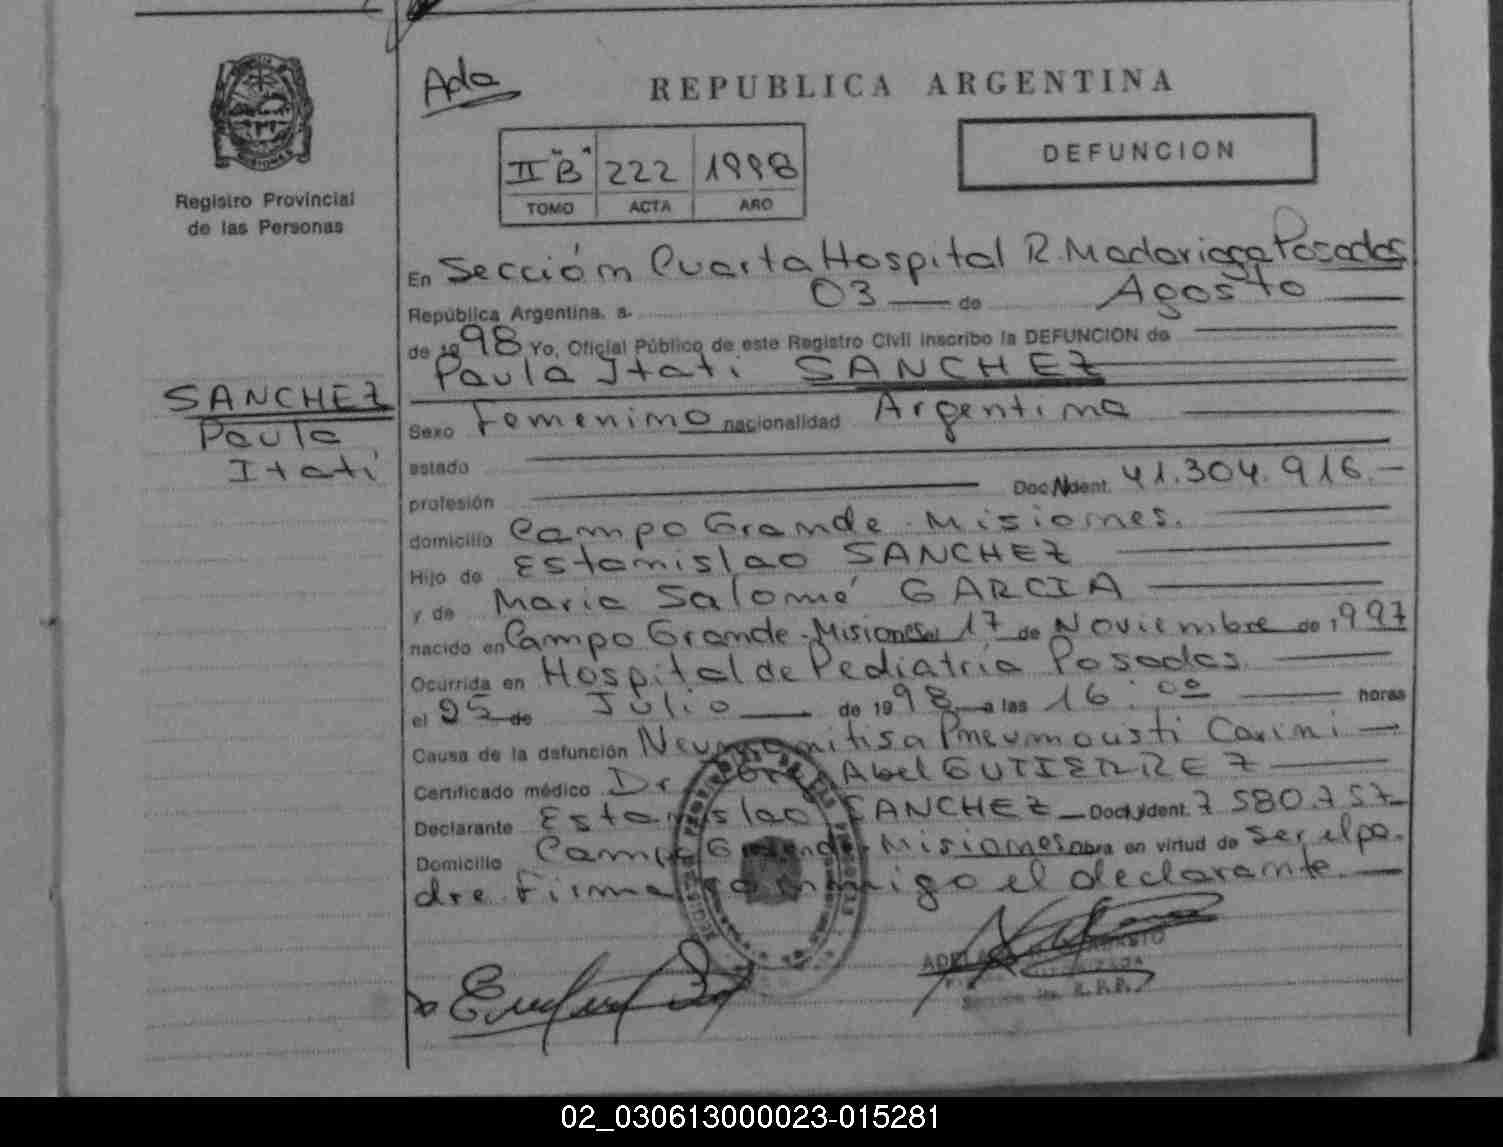 Ada
REPUBLICA ARGENTINA
II "B" 222 1998
TOMO ACTA AÑO
DEFUNCION
Registro Provincial
de las Personas
En Sección Cuarta Hospital R. Madariaga Posadas
República Argentina, a 03 de Agosto
de 1998 Yo, Oficial Público de este Registro Civil inscribo la DEFUNCION de
Paula Itati SANCHEZ
SANCHEZ
Paula
Itatí
Sexo Femenino nacionalidad Argentina
estado
profesión Doc. Ident. 41.304.916.-
domicilio Campo Grande - Misiones.
Hijo de Estanislao SANCHEZ
y de Maria Salomé GARCIA
nacido en Campo Grande - Misiones el 17 de Noviembre de 1997
Ocurrida en Hospital de Pediatría Posadas.
el 25 de Julio de 1998 a las 16:00 horas
Causa de la defunción Carini
Certificado médico Dr Abel GUTIERREZ
Declarante Estanislao SANCHEZ Doc. Ident. 7.580.757-
Domicilio Campo Grande - Misiones obra en virtud de ser el pa-
dre. Firma conmigo el declarante.
02_030613000023-015281